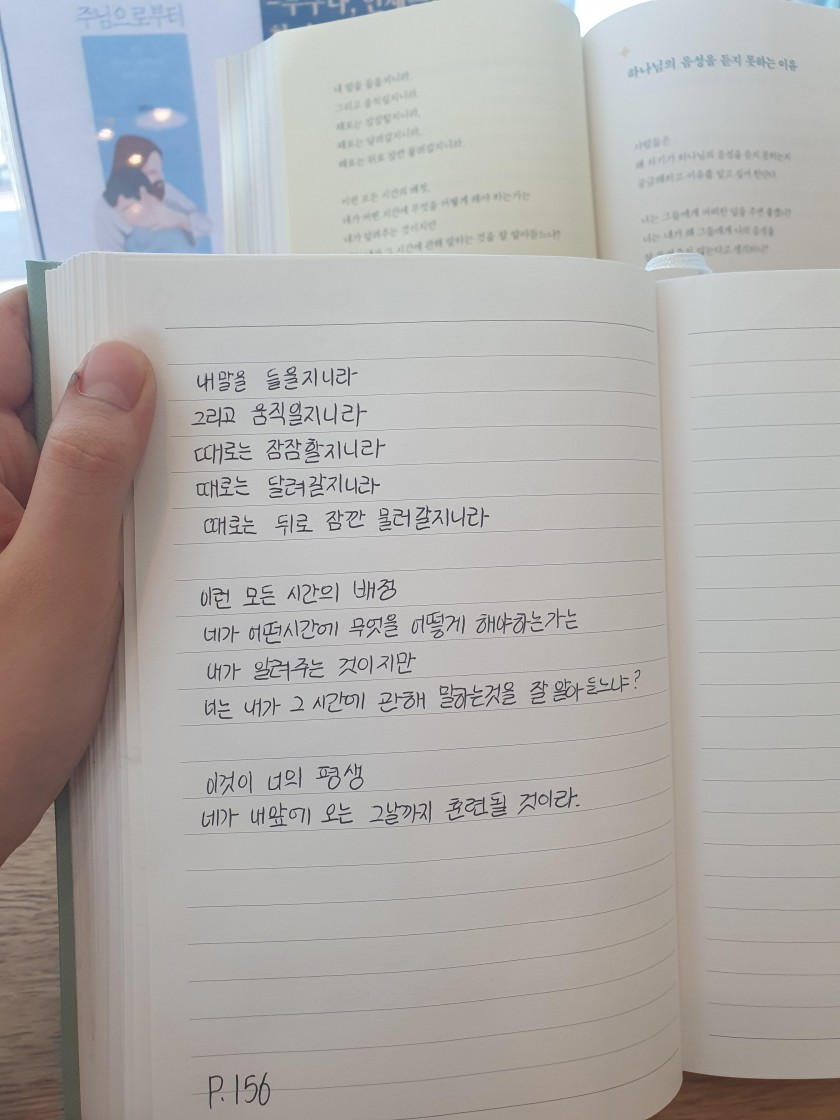 주님으로부터
내 말을 들을지니라.
그리고 움직일지니라.
때로는 잠잠할지니라.
때로는 달려갈지니라.
때로는 뒤로 잠깐 물러갈지니라.
이런 모든 시간의 배정,
네가 어떤 시간에 무엇을 어떻게 해야 하는가는
내가 알려주는 것이지만
내가 그 시간에 관해 말하는 것을 잘 알아듣느냐?
하나님의 음성을 듣지 못하는 이유
사람들은
왜 자기가 하나님의 음성을 듣지 못하는지
궁금해하고 이유를 알고 싶어 한단다.
너는 그들에게 어떠한 답을 주면 좋겠니?
너는 내가 왜 그들에게 나의 음성을
내말을 들을지니라
그리고 움직일지니라
때로는 잠잠할지니라
때로는 달려갈지니라
때로는 뒤로 잠깐 물러갈지니라
이런 모든 시간의 배정
네가 어떤시간에 무엇을 어떻게 해야하는가는
내가 알려주는 것이지만
너는 내가 그 시간에 관해 말하는것을 잘 알아듣느냐?
이것이 너의 평생
네가 내앞에 오는 그날까지 훈련될 것이라.
P.156